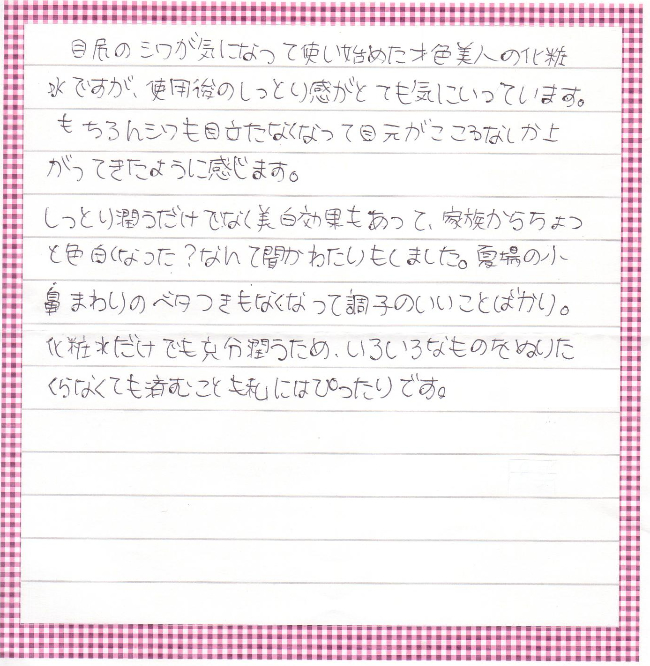 目尻のシワが気になって使い始めた才色美人の化粧
水ですが、使用後のしっとり感がとても気にいっています。
もちろんシワも目立たなくなって目元がこころなしか上
がってきたように感じます。
しっとり潤うだけでなく美白効果もあって、家族からちょっ
と色白くなった?なんて聞かれたりもしました。夏場の小
鼻まわりのベタつきもなくなって調子のいいことばかり。
化粧水だけでも充分潤うため、いろいろなものをぬりた
くらなくても済むことも私にはぴったりです。